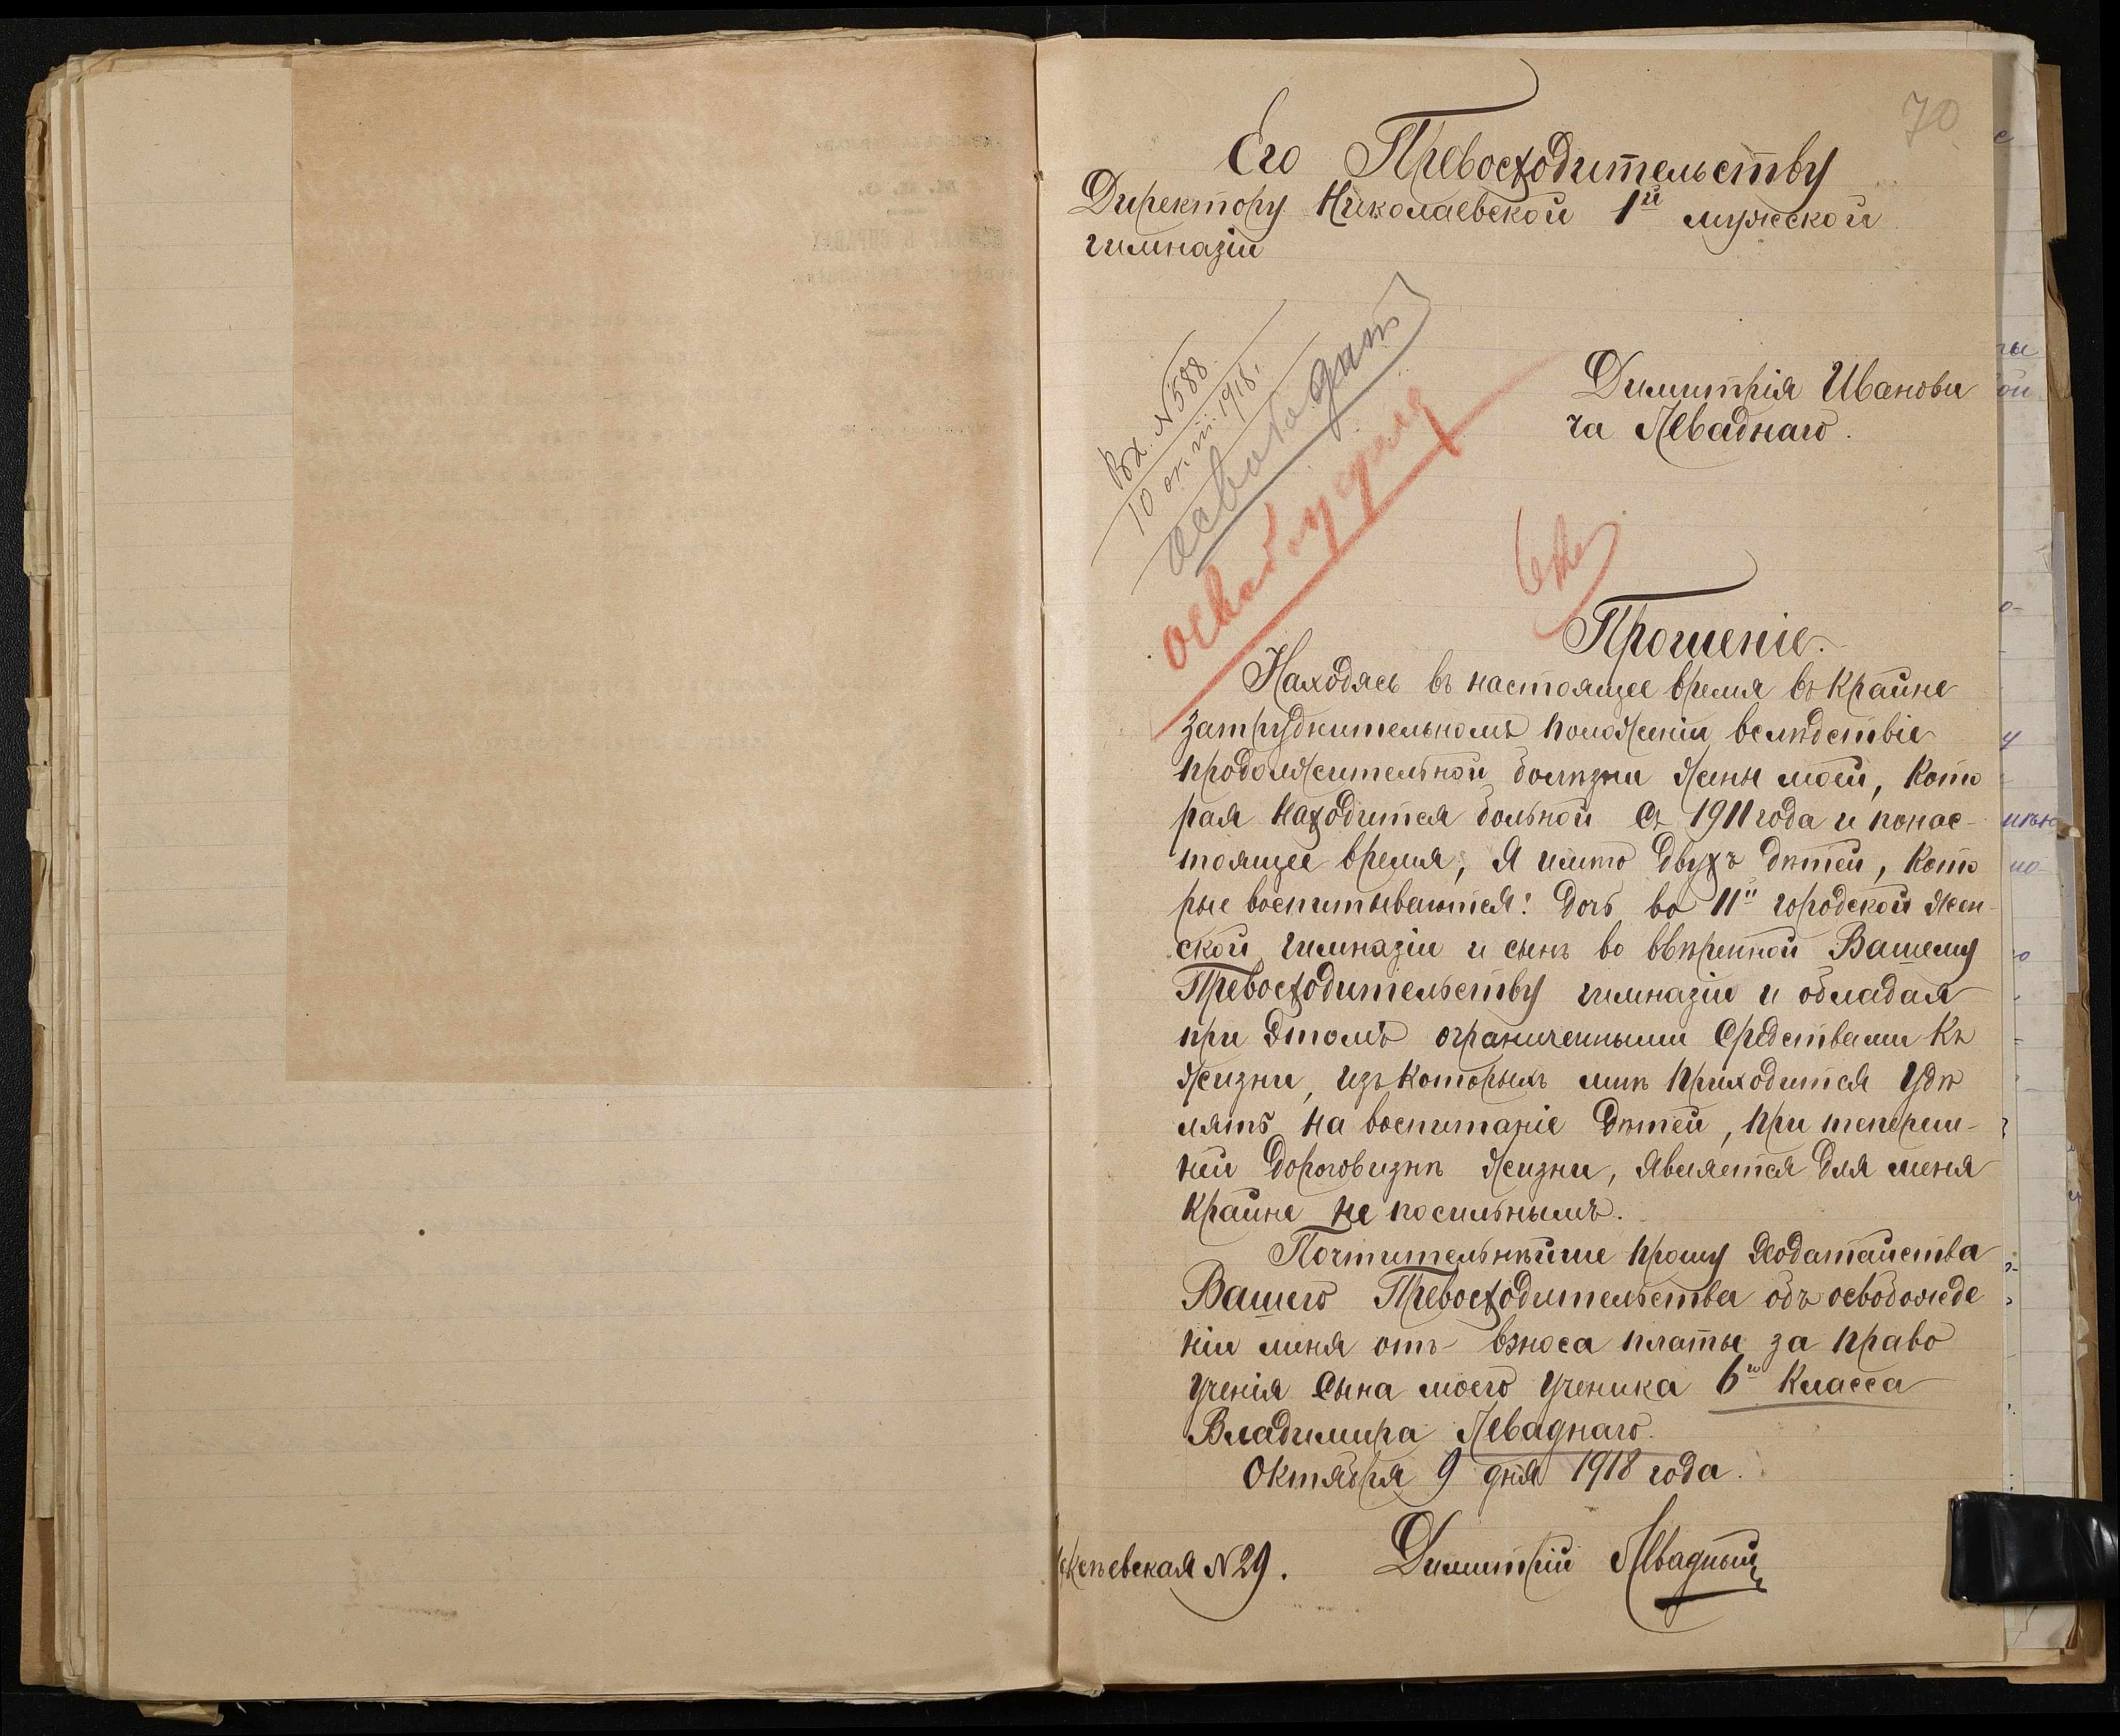 70
Его Превосходительству
Директору Николаевской 1й мужеской
гимназіи
Вх. № 588
10 окт. 1918 г.
освободит
Димитрія Иванови
ча Левадного.
Прошеніе.
Находясь въ настоящее время въ крайне
затруднительномъ положеніи вслѣдствіе
продолжительной болѣзни жены моей, кото
рая находится больной съ 1911 года и понас-
тоящее время, я имѣю двухъ дѣтей, кото
рые воспитываются: дочь во 11й городской жен-
ской гимназіи и сынъ во ввѣренной Вашему
Превосходительству гимназіи и обладая
при этомъ ограниченными средствами къ
жизни, изъ которыхъ мнѣ приходится удѣ
лять на воспитаніе дѣтей, при тепереш-
ней дороговизнѣ жизни, является для меня
крайне не посильнымъ.
Почтительнѣйше прошу ходатайства
Вашего Превосходительства объ освобожде
ніи меня отъ взноса платы за право
ученія сына моего ученика 6го класса
Владимира Леваднаго.
Октября 9 дня 1918 года.
№ 29. Димитрій Левадный